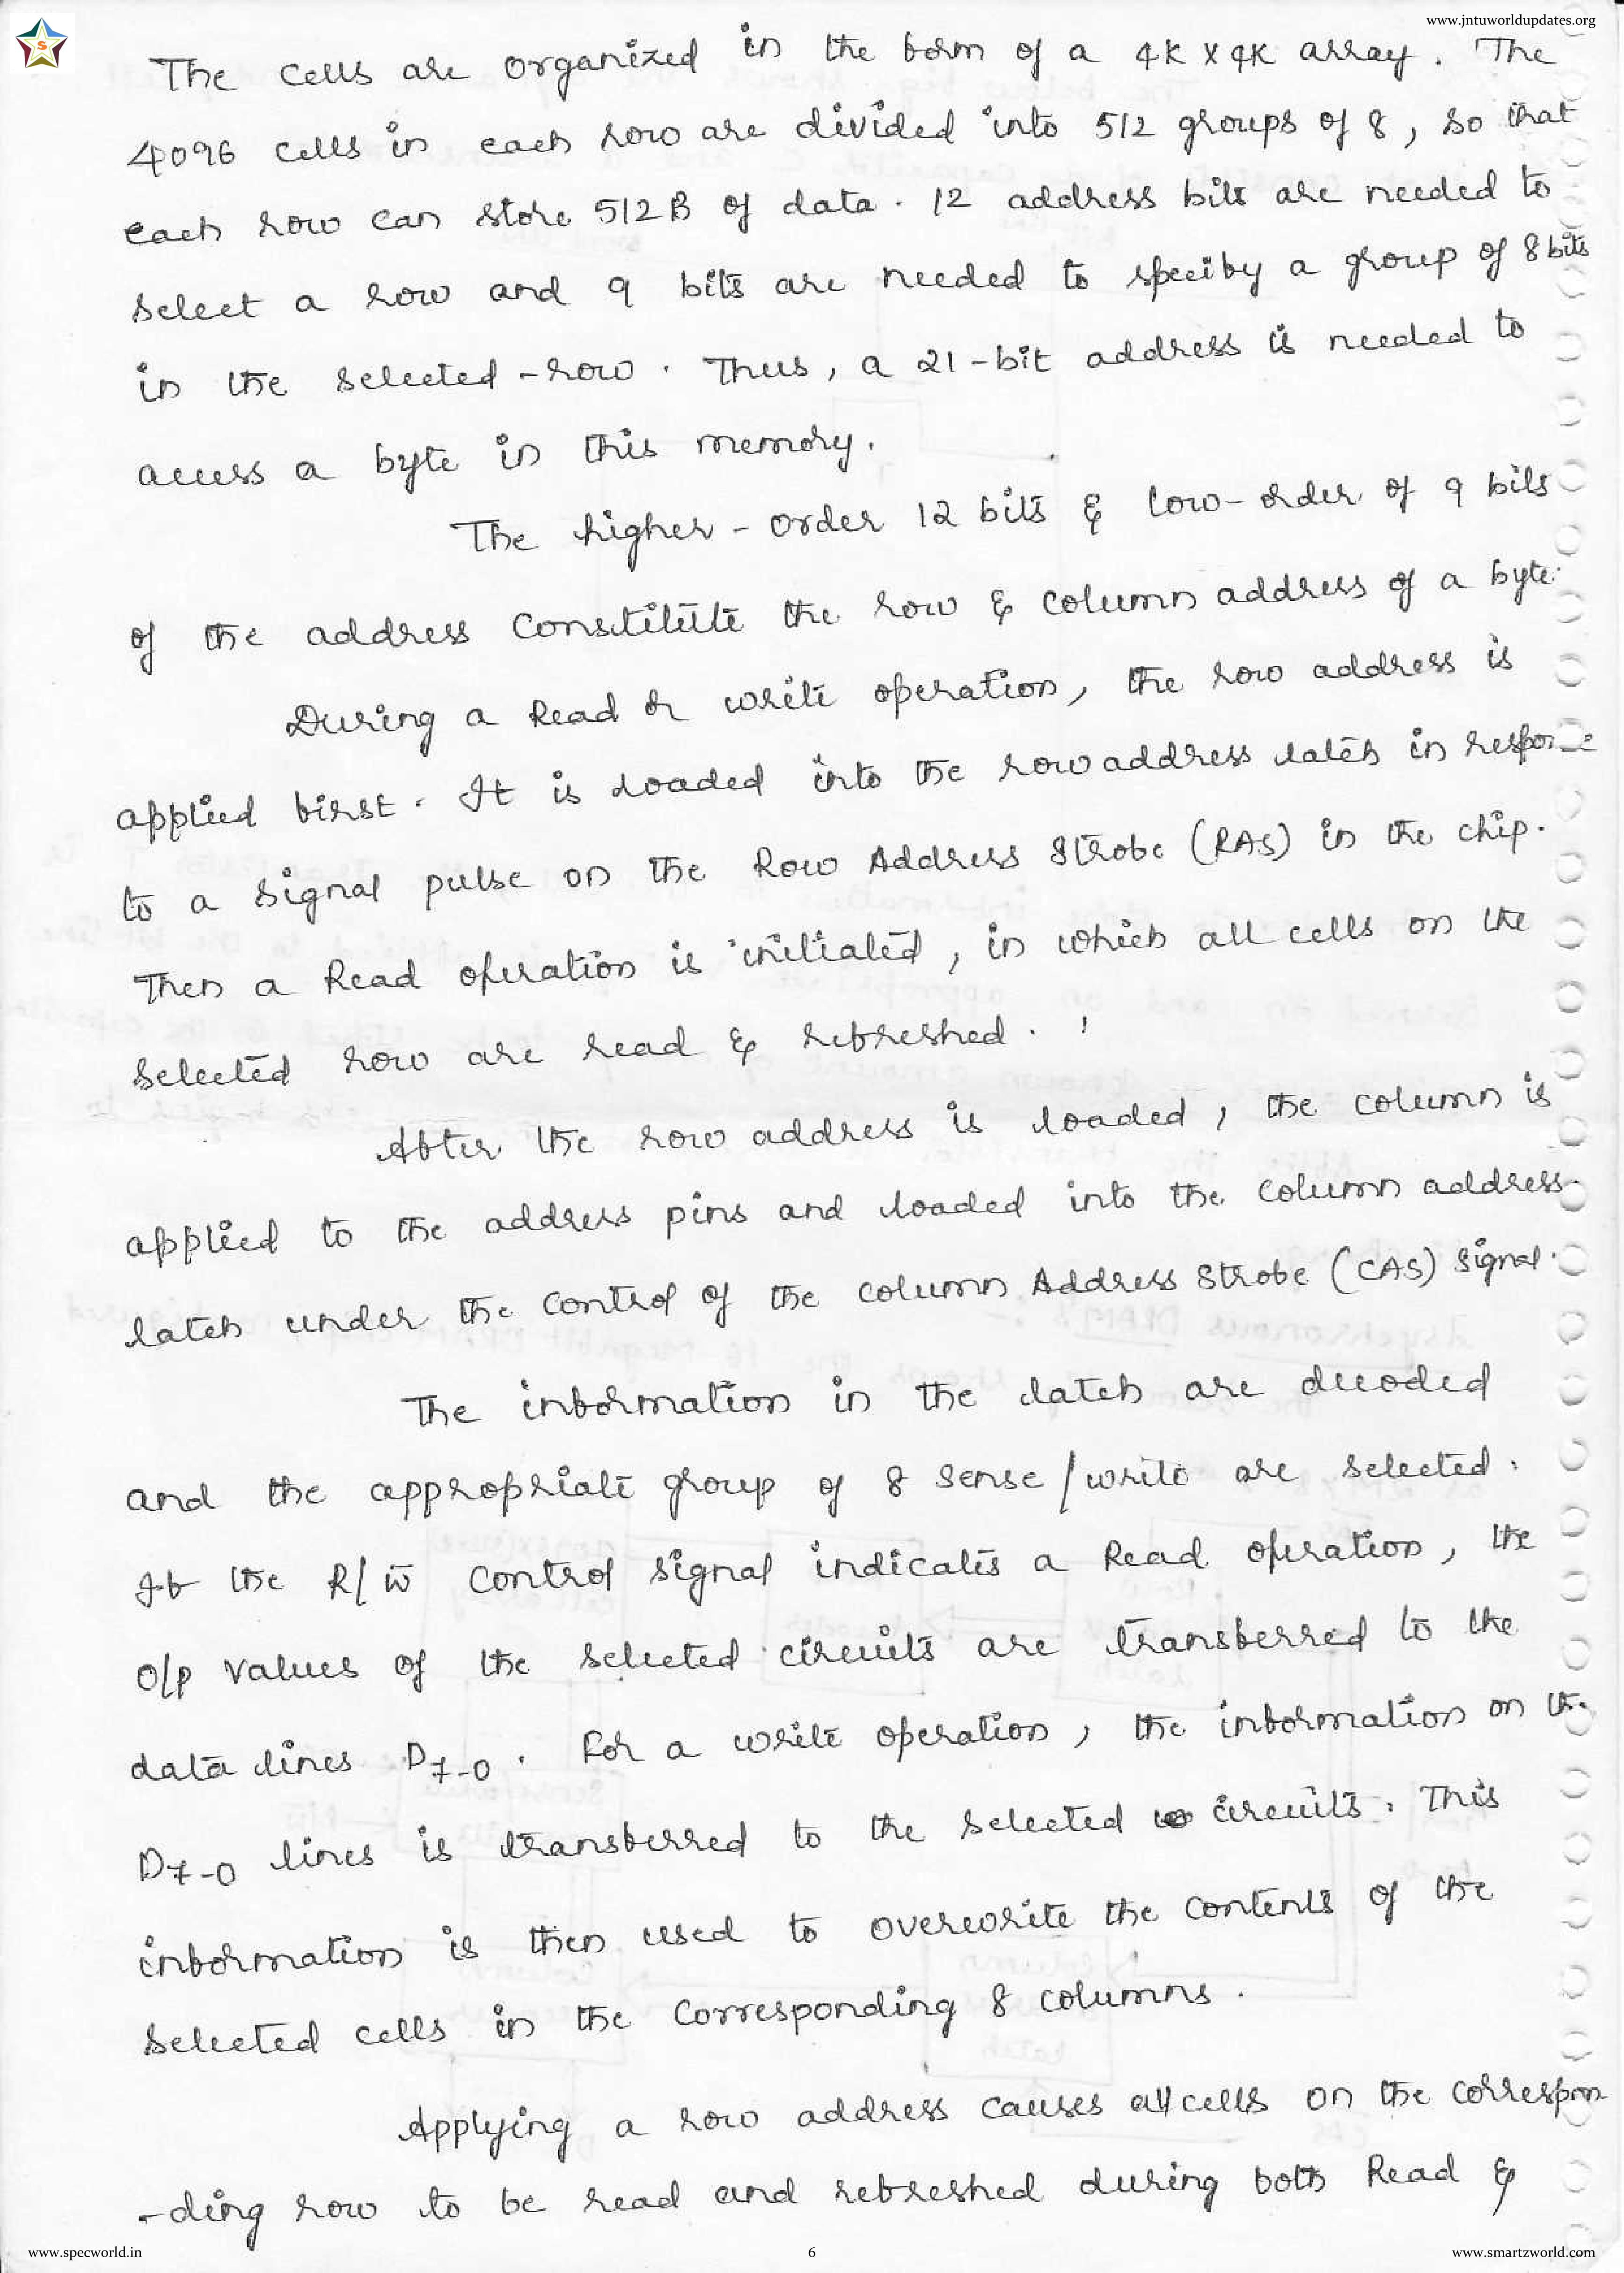 www.jntuworldupdates.org
S
The cells are organized in the form of a 4K x 4K array. The
4096 cells in each row are divided into 512 groups of 8, so that
each row can store 512 B of data. 12 address bits are needed to
select a row and 9 bits are needed to specify a group of 8 bits
in the selected - row. Thus, a 21-bit address is needed to
access a byte in this memory.
The higher - order 12 bits & low-order of 9 bits
of the address constitute the row & column address of a byte.
During a Read or write operation, the row address is
applied first. It is loaded into the row address latch in response
to a signal pulse on the Row Address Strobe (RAS) in the chip.
Then a Read operation is initiated, in which all cells on the
selected row are read & refreshed.
After the row address is loaded, the column is
applied to the address pins and loaded into the column address
latch under the control of the column Address Strobe (CAS) signal.
The information in the latch are decoded
and the appropriate group of 8 sense/write are selected.
If the R/w̅ control signal indicates a Read operation, the
o/p values of the selected circuits are transferred to the
data lines D7-0. For a write operation, the information on the
D7-0 lines is transferred to the selected circuits. This
information is then used to overwrite the contents of the
selected cells in the corresponding 8 columns.
Applying a row address causes all cells on the correspon
-ding row to be read and refreshed during both Read &
www.specworld.in
6
www.smartzworld.com